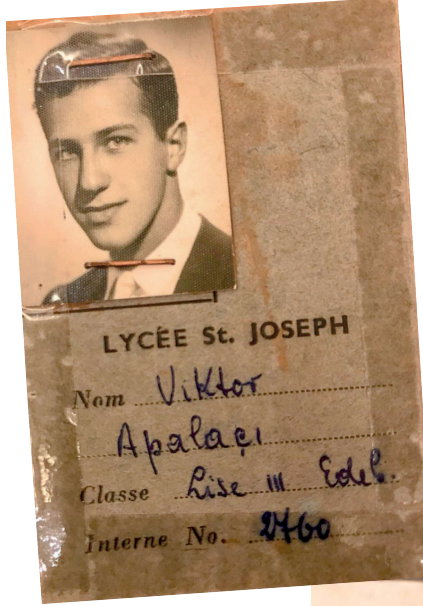 LYCÉE St. JOSEPH
Nom Viktor
Apalaçı
Classe Lise III Edeb.
Interne No. 2760